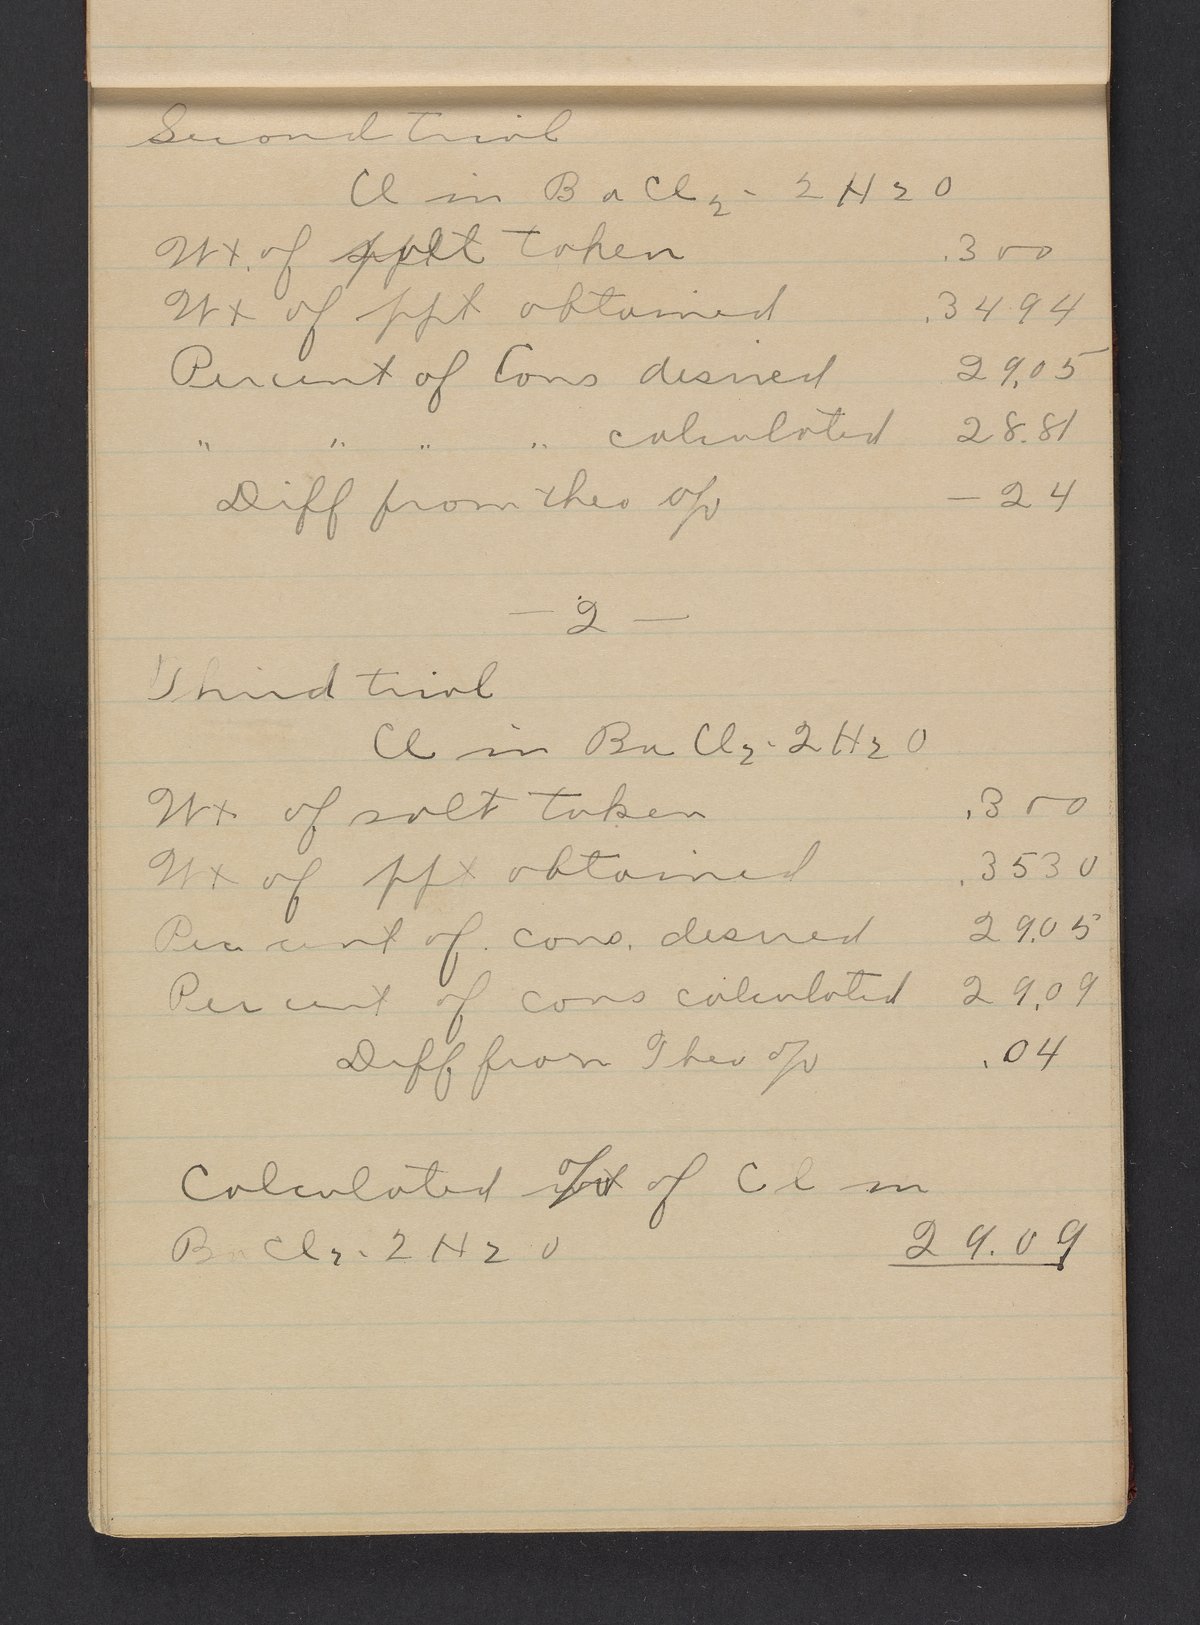 Second trial
Cl in BaCl2 · 2H2O
Wt. of salt taken .300
Wt of ppt obtained .3494
Percent of Cons desired 29.05
" " " " calculated 28.81
Diff from theo % - 24
- 2 -
Third trial
Cl in BaCl2 · 2H2O
Wt of salt taken .300
Wt of ppt obtained .3530
Percent of cons. desired 29.05
Percent of cons calculated 29.09
Diff from Theo % .04
Calculated % of Cl in
BaCl2 · 2H2O 29.09